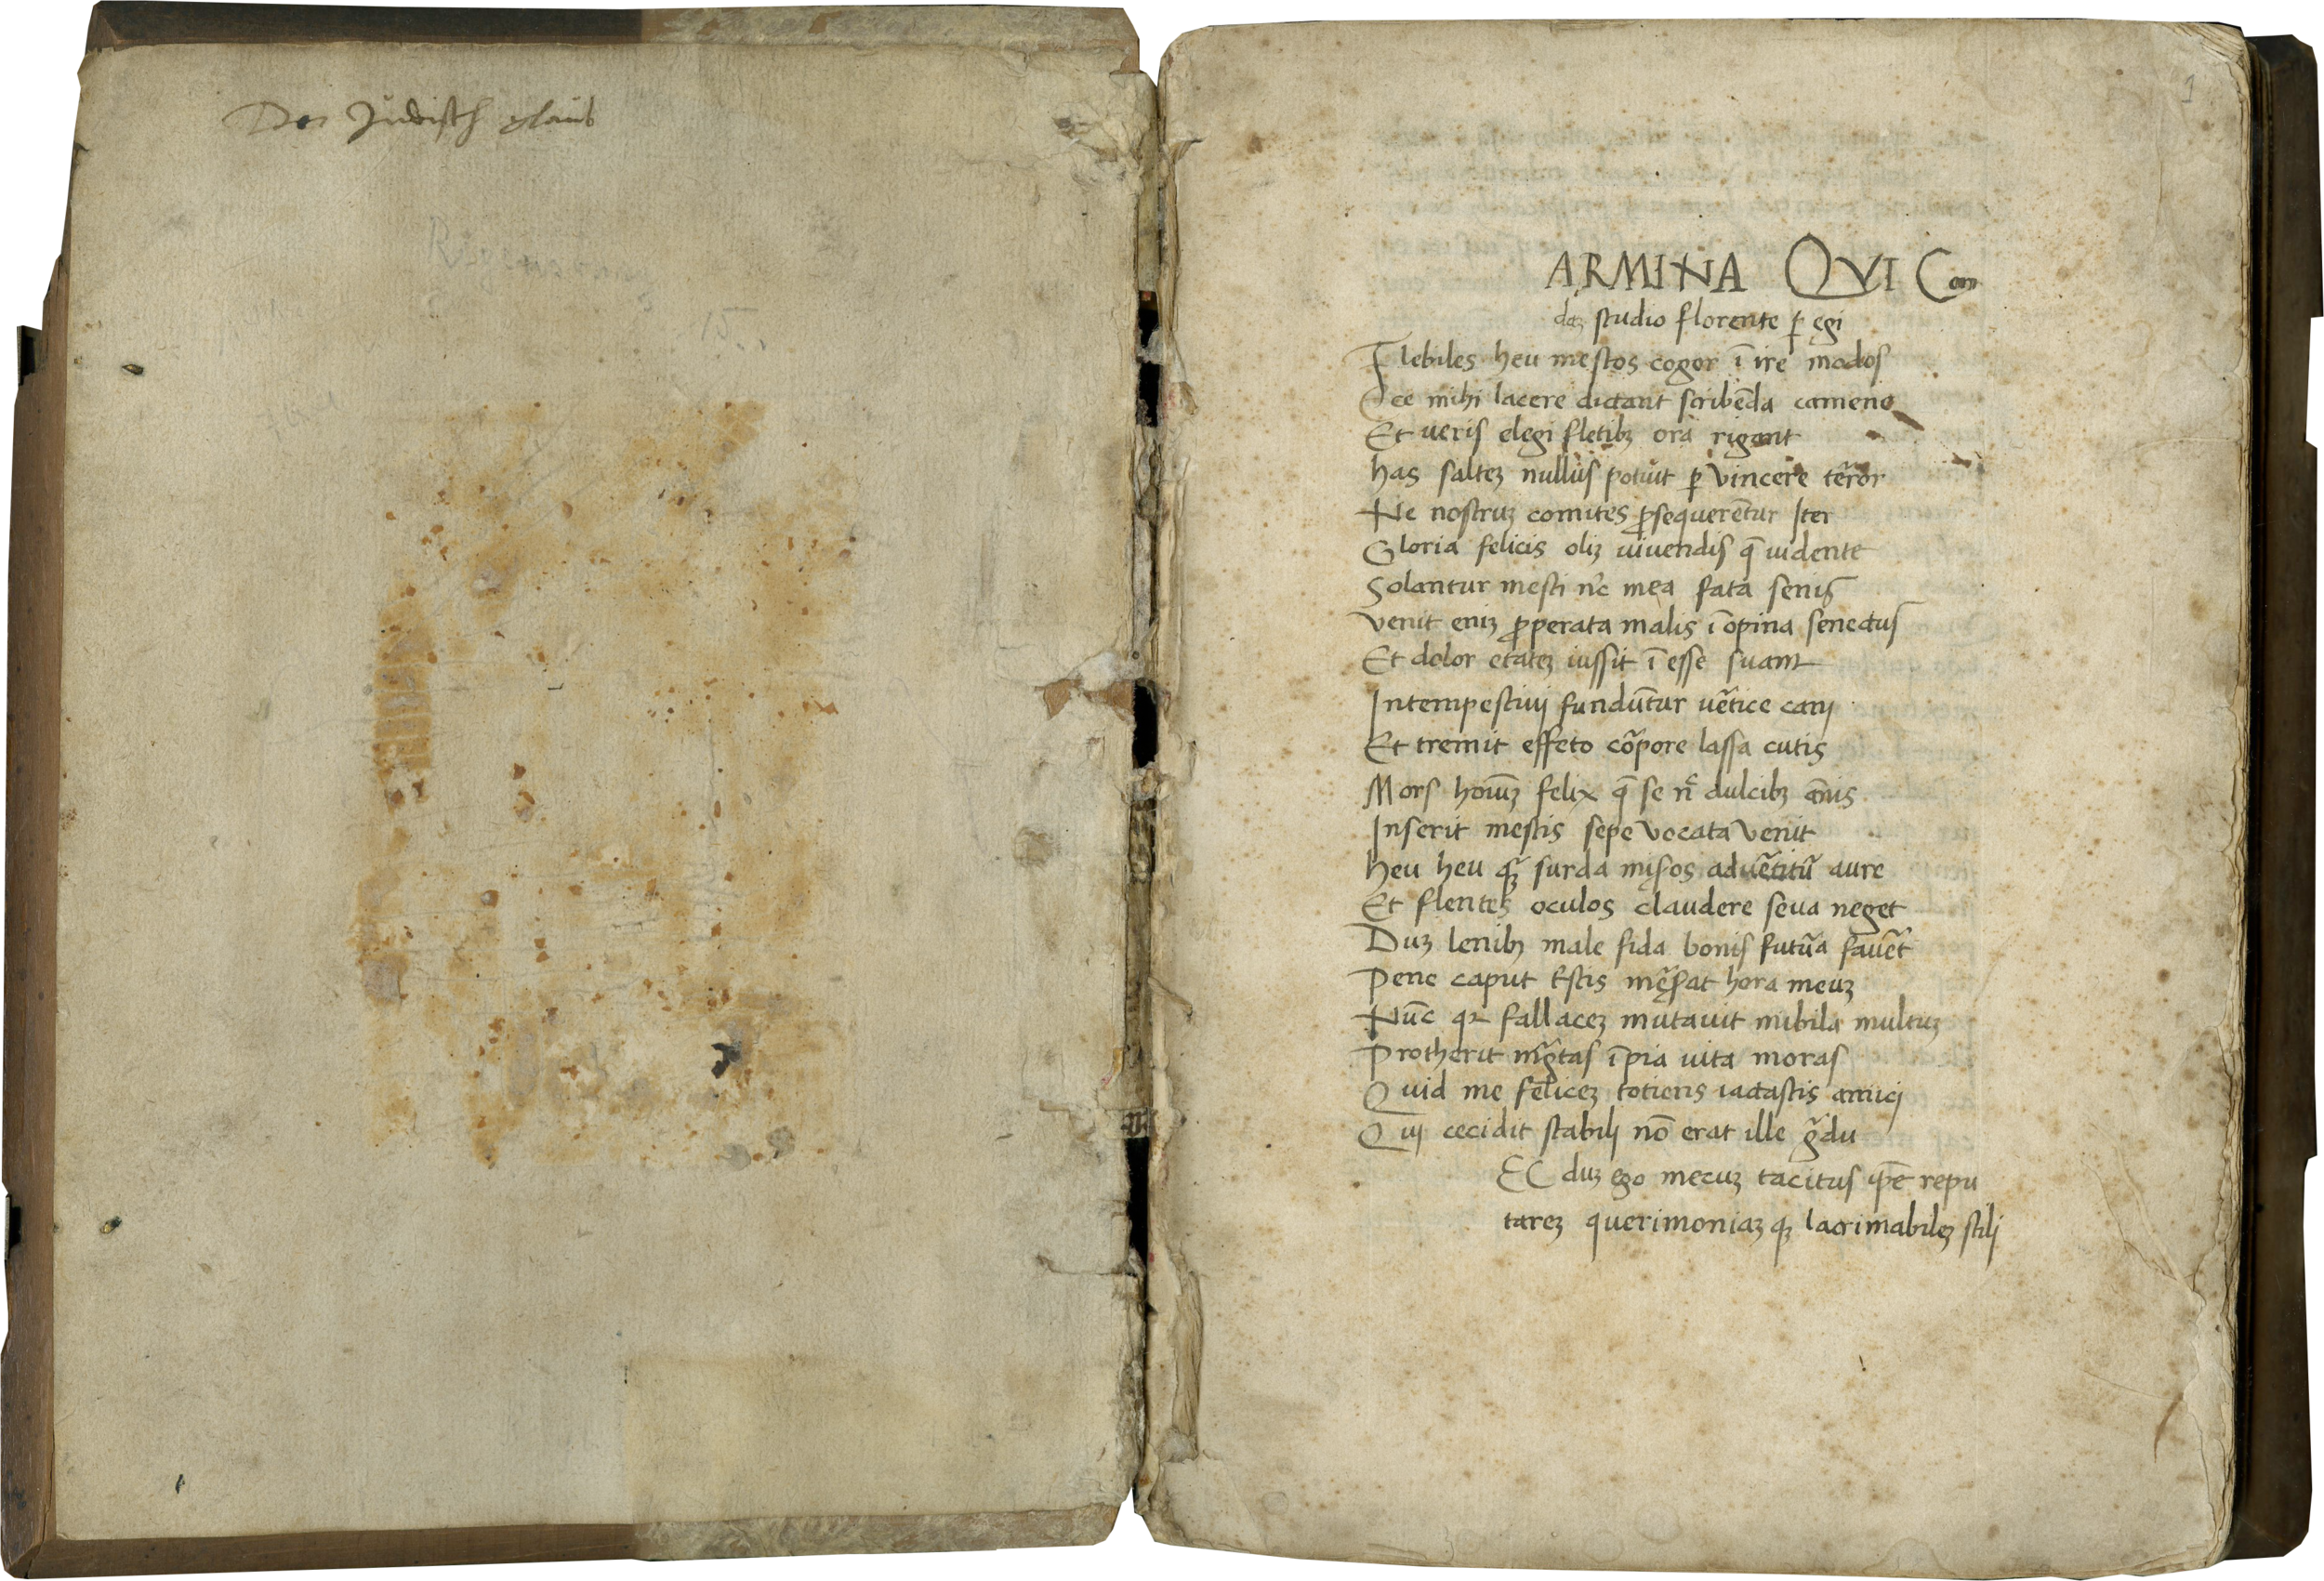 Der Judisch glaub
1
ARMINA QVI Con
daʒ studio florente ꝑ egi
Flebiles heu mestos cogor ī ire modos
Ecce mihi lacere dictant scribēda camene
Et ueris elegi fletibʒ ora rigant
has salteʒ nullus potuit ꝑ vincere tēror
Ne nostruʒ comites ꝓsequerētur Iter
Gloria felicis oliʒ uiuendis q̄ uidente
Solantur mesti nc̄ mea fata senis
Venit eniʒ ꝓperata malis ī opina senectus
Et dolor etateʒ iussit ī esse suam
Intempestiuij fundūtur uētice canj
Et tremit effeto cōpore lassa cutis
Mors hoiūʒ felix q̄ se n̄ dulcibʒ annis
Inserit mestis sepe vocata venit
heu heu qʒ̄ surda miseros aduētitū aure
Et flentes oculos claudere seua neget
Duʒ lenibʒ male fida bonis futūa fauēt
Pene caput tstis męrsat hora meuʒ
Nūc qr fallaceʒ mutauit nubila multuʒ
Protherit īgtas īpia uita moras
Quid me feliceʒ totiens iactastis amicj
Quj cecidit stabilj nō erat ille ḡdu
EC duʒ ego mecuʒ tacitus ip̄e repu
tareʒ querimoniaʒ qʒ lacrimabileʒ stilj